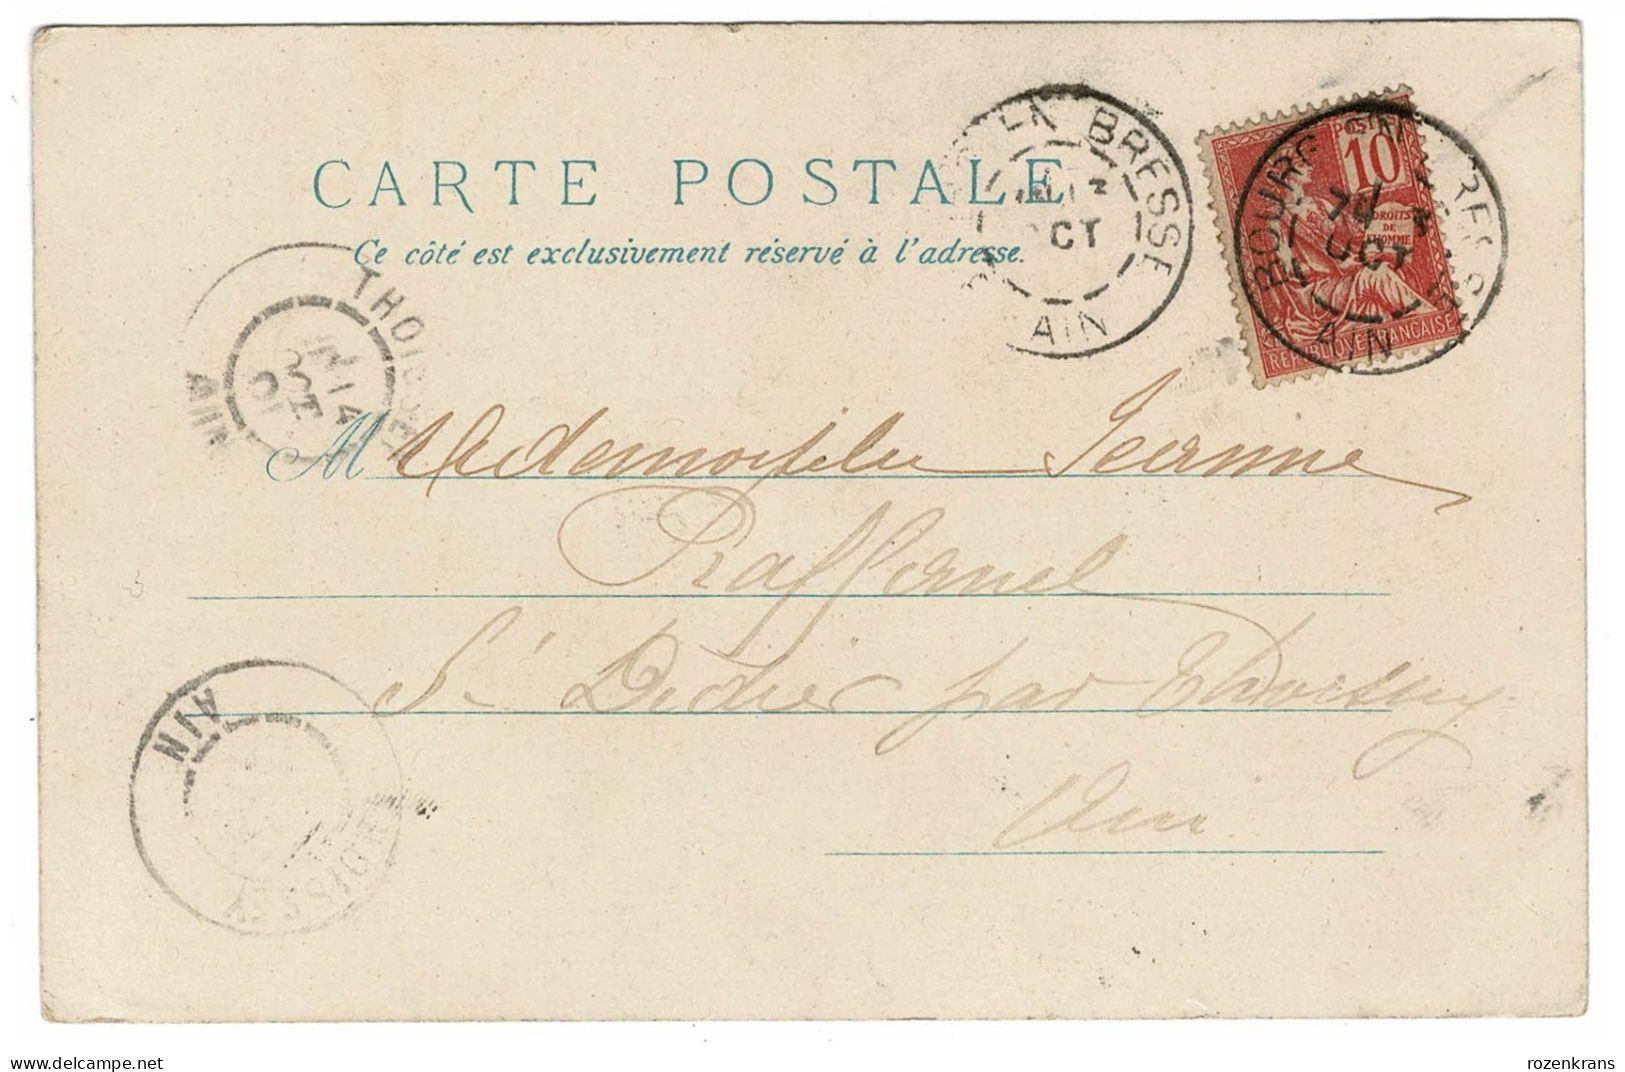 CARTE POSTALE
Ce côté est exclusivement réservé à l'adresse.
LA BRESSE
OCT
AIN
BOURG
OCT
AIN
POSTES
10
DROITS
DE
L'HOMME
REPUBLIQUE FRANCAISE
THOISSEY
AIN
M Mademoiselle Jeanne
Raffornel
St Didier par Thoissey
Ain
AIN
THOISSEY
delcampe.net
rozenkrans